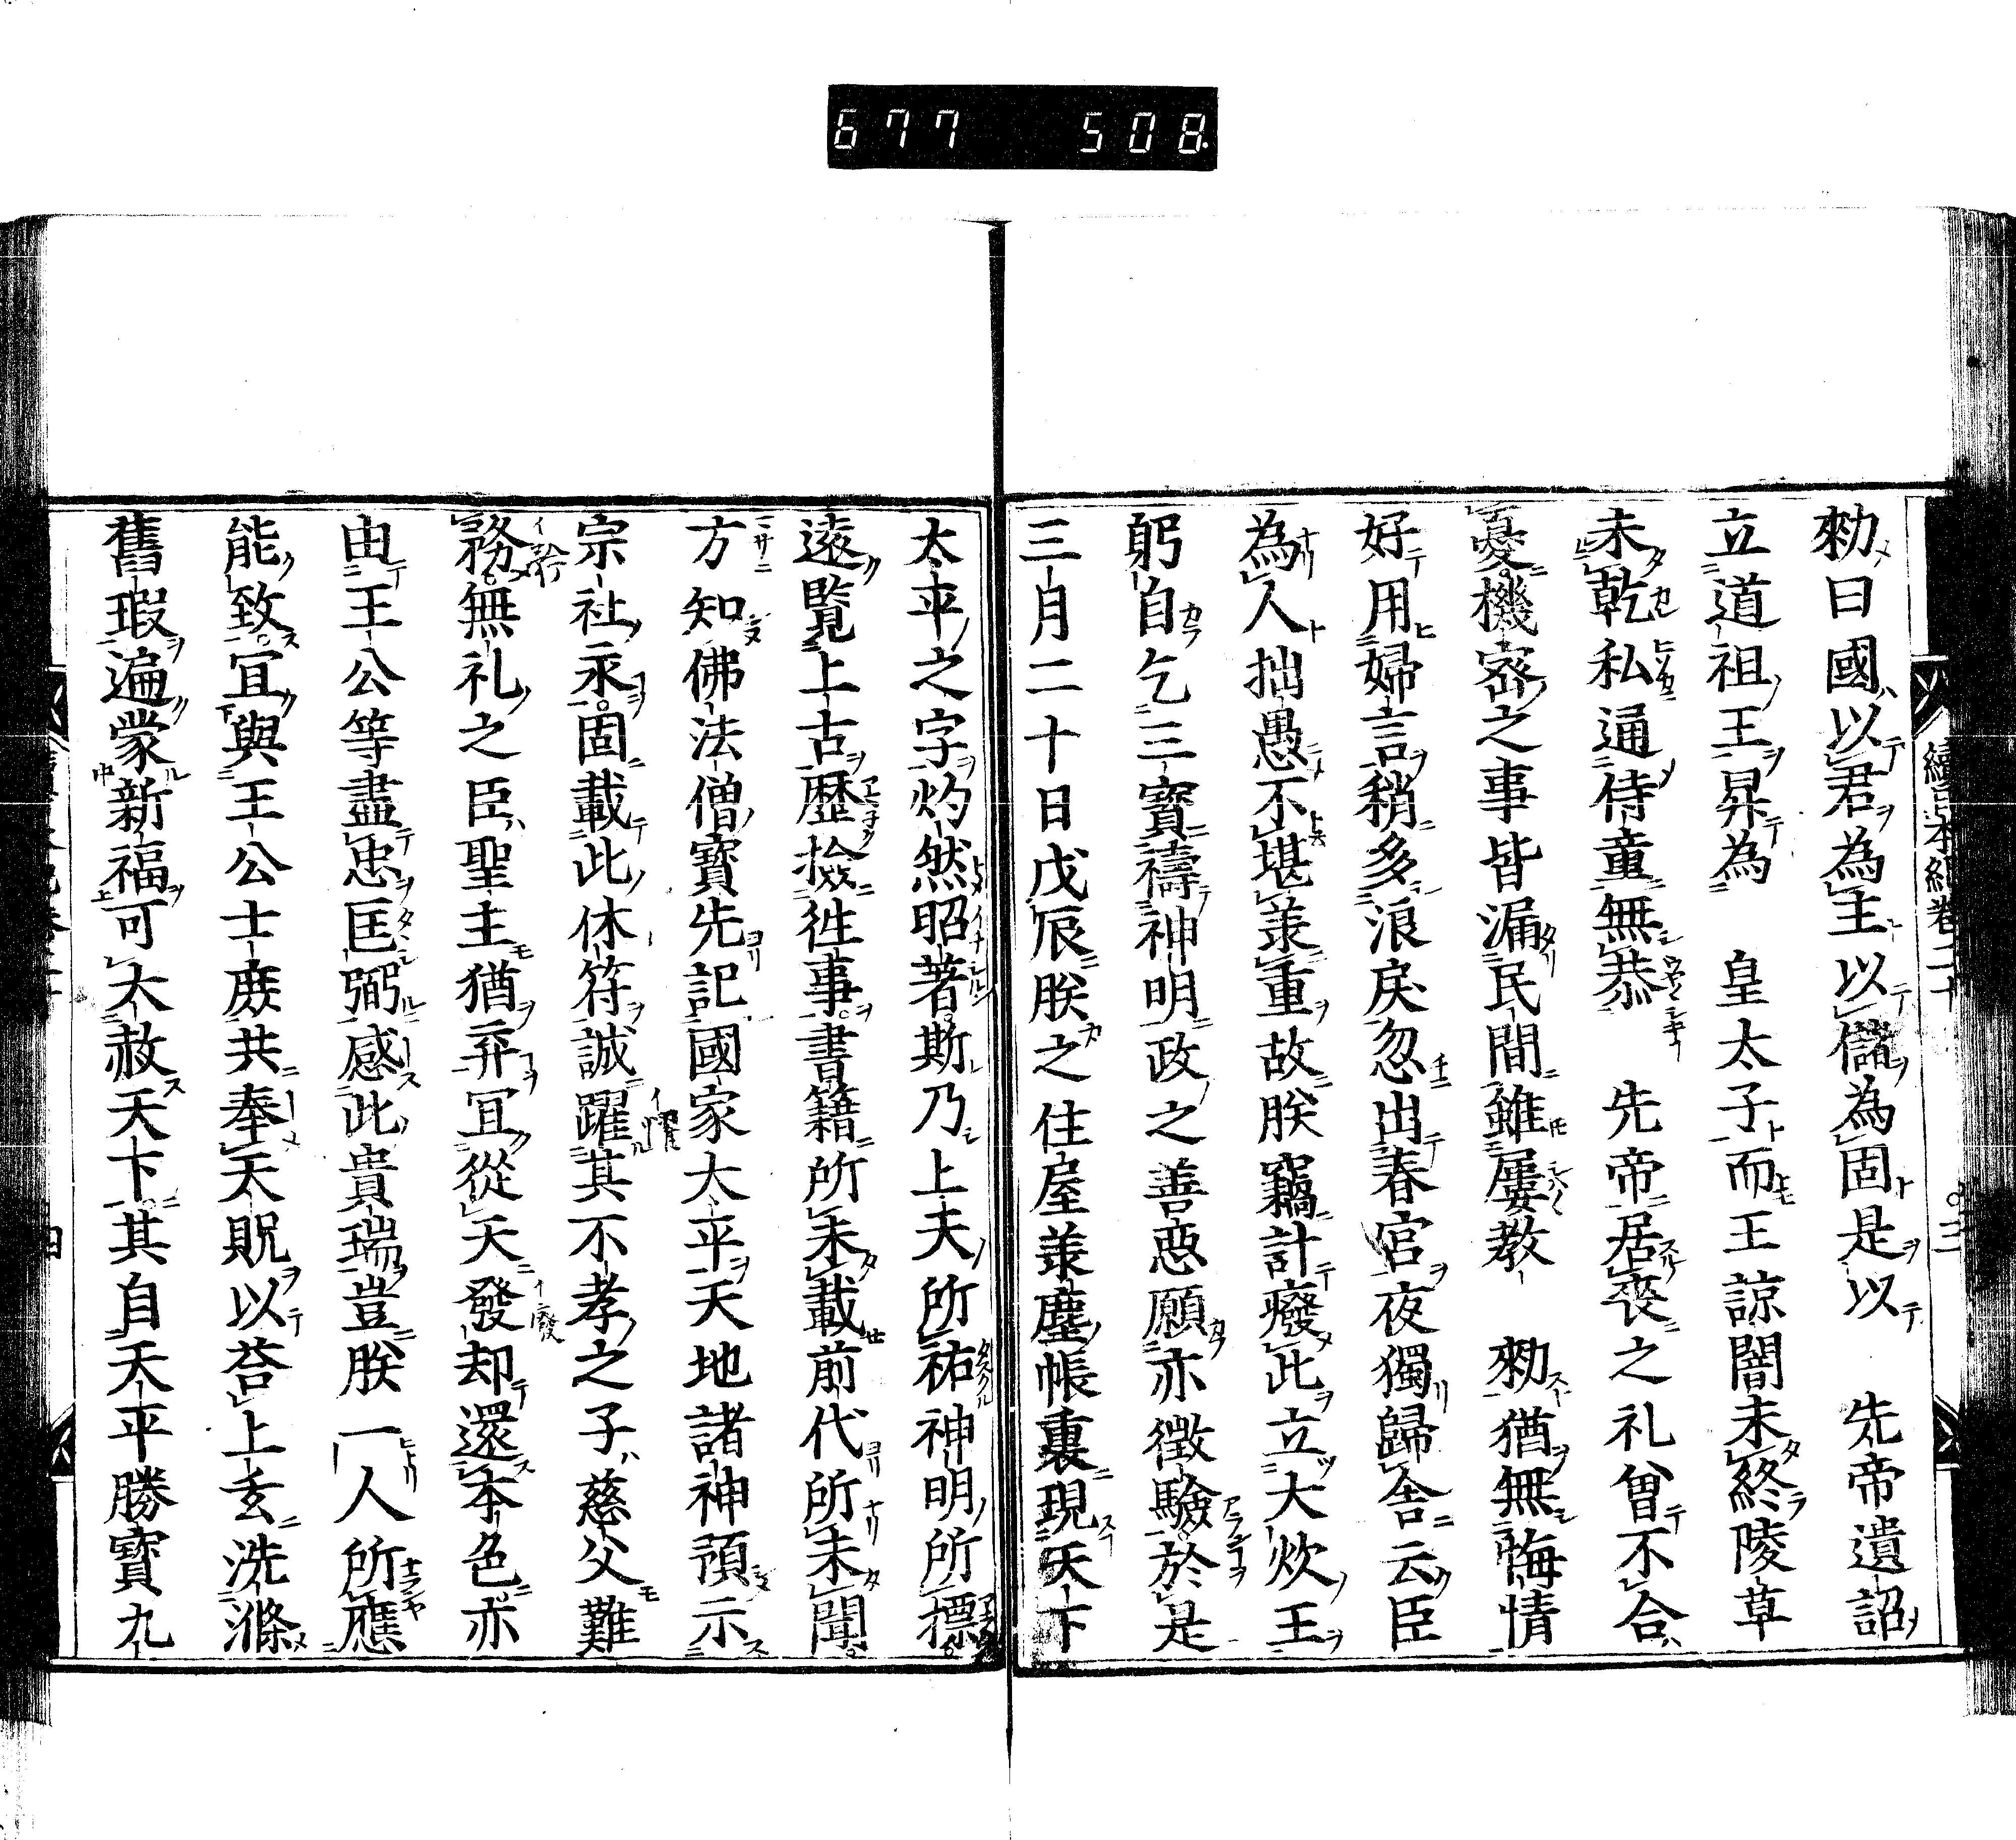 677 508
續日本紀卷二十
勑曰國以君為主以儲為固是以　先帝遺詔
立道祖王昇為　皇太子而王諒闇未終陵草
未乾私通侍童無恭　先帝居喪之礼曾不合
憂機密之事皆漏民間雖屢教　勑猶無悔情
好用婦言稍多浪戻忽出春宮夜獨歸舍云臣
為人拙愚不堪羕重故朕竊計癈此立大炊王
躬自乞三寶禱神明政之善惡願亦徵驗於是
三月二十日戊辰朕之住屋羕塵帳裏現天下
太平之字灼然昭著斯乃上天所祐神明所標
遠覽上古歴撿徃事書籍所未載前代所未聞
方知佛法僧寶先記國家太平天地諸神預示
宗社永固載此休符誠躍其不孝之子慈父難
務無礼之臣聖主猶弃冝從天發却還本色亦
由王公等盡忠匡弼感此貴瑞豈朕一人所應
能致宜與王公士庶共奉天貺以荅上玄洗滌
舊瑕遍蒙新福可大赦天下其自天平勝寶九